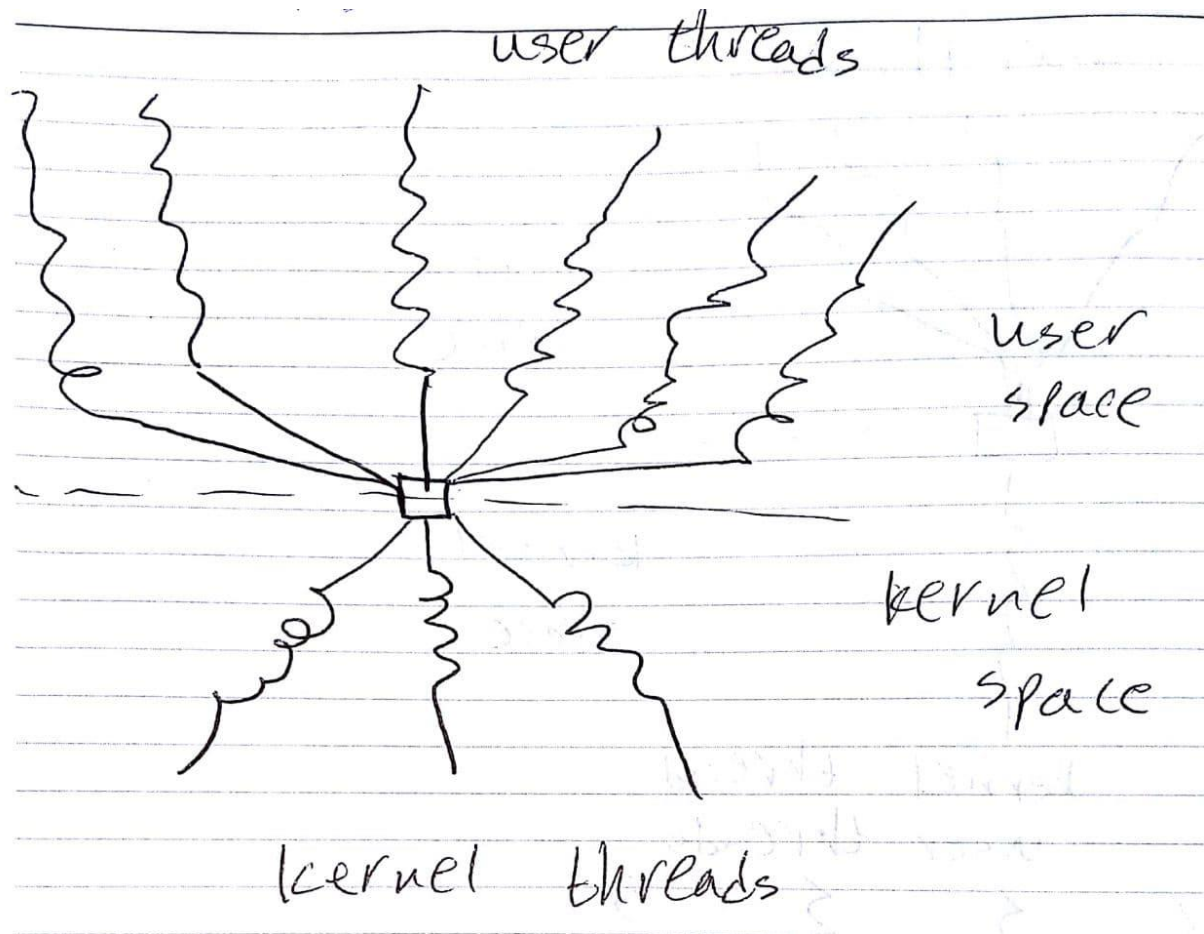 user threads
user
space
kernel
space
kernel threads